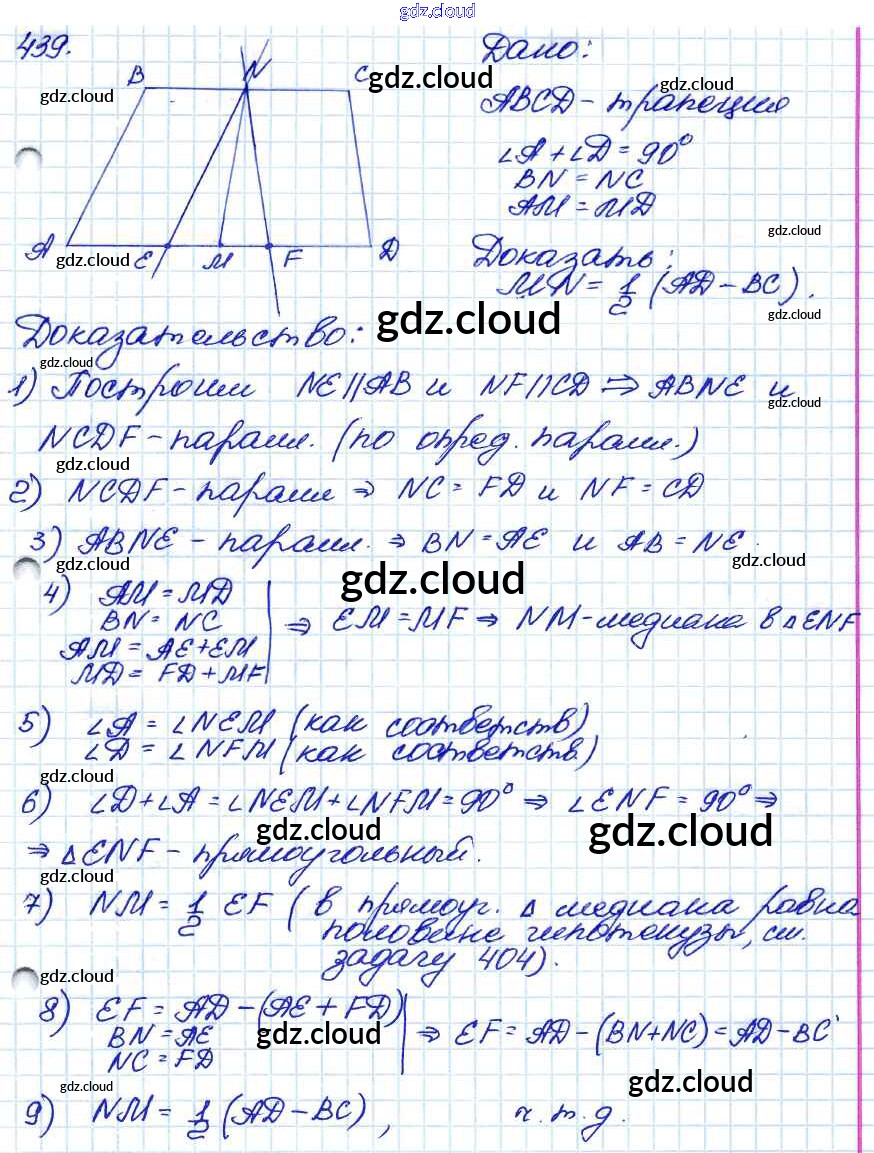 gdz.cloud
439.
Дано:
B N C
gdz.cloud
gdz.cloud
gdz.cloud
ABCD - трапеция
∠A + ∠D = 90°
BN = NC
AM = MD
gdz.cloud
A E M F D
gdz.cloud
gdz.cloud
Доказать:
MN = 1/2 (AD - BC).
gdz.cloud
gdz.cloud
Доказательство:
gdz.cloud
1) Построим NE||AB и NF||CD ⇒ ABNE и
gdz.cloud
NCDF - парал. (по опред. парал.)
gdz.cloud
2) NCDF - парал ⇒ NC = FD и NF = CD
3) ABNE - парал. ⇒ BN = AE и AB = NE.
gdz.cloud
gdz.cloud
gdz.cloud
4) AM = MD
BN = NC
AM = AE + EM
MD = FD + MF
⇒ EM = MF ⇒ NM - медиана в ΔENF
5) ∠A = ∠NEM (как соответств)
∠D = ∠NFM (как соответств.)
gdz.cloud
6) ∠D + ∠A = ∠NEM + ∠NFM = 90° ⇒ ∠ENF = 90° ⇒
gdz.cloud
gdz.cloud
⇒ ΔENF - прямоугольный.
gdz.cloud
7) NM = 1/2 EF (в прямоуг. Δ медиана равна
половине гипотенузы, см.
задачу 404).
gdz.cloud
gdz.cloud
8) EF = AD - (AE + FD)
BN = AE
NC = FD
⇒ EF = AD - (BN + NC) = AD - BC
gdz.cloud
gdz.cloud
gdz.cloud
9) NM = 1/2 (AD - BC), ч.т.д.